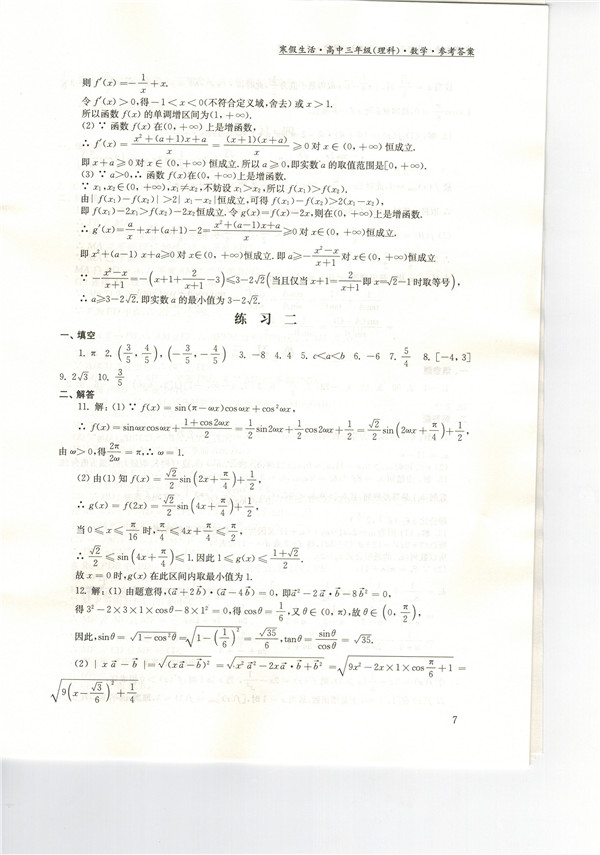 寒假生活·高中三年级(理科)·数学·参考答案
则 f′(x)=-1/x+x.
令 f′(x)>0,得-1<x<0(不符合定义域,舍去) 或 x>1.
所以函数 f(x) 的单调增区间为(1,+∞).
(2) ∵ 函数 f(x) 在(0,+∞) 上是增函数,
∴ f′(x)=(x²+(a+1)x+a)/x=((x+1)(x+a))/x≥0 对 x∈(0,+∞) 恒成立.
即 x+a≥0 对 x∈(0,+∞) 恒成立. 所以 a≥0,即实数 a 的取值范围是[0,+∞).
(3) ∵ a>0,∴ 函数 f(x)在(0,+∞)上是增函数.
∵ x₁,x₂∈(0,+∞),x₁≠x₂,不妨设 x₁>x₂,所以 f(x₁)>f(x₂).
由| f(x₁)-f(x₂)|>2| x₁-x₂|恒成立,可得 f(x₁)-f(x₂)>2(x₁-x₂),
即 f(x₁)-2x₁>f(x₂)-2x₂恒成立. 令 g(x)=f(x)-2x,则在(0,+∞)上是增函数.
∴ g′(x)=a/x+x+(a+1)-2=(x²+(a-1)x+a)/x≥0对 x∈(0,+∞)恒成立.
即 x²+(a-1) x+a≥0对 x∈(0,+∞)恒成立. 即 a≥-(x²-x)/(x+1)对 x∈(0,+∞)恒成立
∵ -(x²-x)/(x+1)=-(x+1+2/(x+1)-3)≤3-2√2(当且仅当 x+1=2/(x+1)即 x=√2-1 时取等号),
∴ a≥3-2√2. 即实数 a 的最小值为 3-2√2.
练 习 二
一、填空
1. π 2. (3/5,4/5),(-3/5,-4/5) 3. -8 4. 4 5. c<a<b 6. -6 7. 5/4 8. [-4,3]
9. 2√3 10. 3/5
二、解答
11. 解:(1) ∵ f(x)=sin(π-ωx)cosωx+cos²ωx,
∴ f(x)=sinωxcosωx+(1+cos2ωx)/2=1/2sin2ωx+1/2cos2ωx+1/2=√2/2sin(2ωx+π/4)+1/2,
由 ω>0,得2π/2ω=π,∴ ω=1.
(2) 由(1) 知 f(x)=√2/2sin(2x+π/4)+1/2,
∴ g(x)=f(2x)=√2/2sin(4x+π/4)+1/2,
当 0≤x≤π/16 时,π/4≤4x+π/4≤π/2,
∴ √2/2≤sin(4x+π/4)≤1. 因此 1≤g(x)≤(1+√2)/2.
故 x=0 时,g(x) 在此区间内取最小值为 1.
12. 解:(1) 由题意得,(a⃗+2b⃗)·(a⃗-4b⃗)=0, 即a⃗²-2a⃗·b⃗-8b⃗²=0,
得 3²-2×3×1×cosθ-8×1²=0,得 cosθ=1/6,又 θ∈(0,π),故 θ∈(0,π/2),
因此,sinθ=√(1-cos²θ)=√(1-(1/6)²)=√35/6,tanθ=sinθ/cosθ=√35.
(2) | x a⃗-b⃗ |=√((xa⃗-b⃗)²)=√(x²a⃗²-2xa⃗·b⃗+b⃗²)=√(9x²-2x×1×cosπ/6+1)=
√(9(x-√3/6)²+1/4)
7